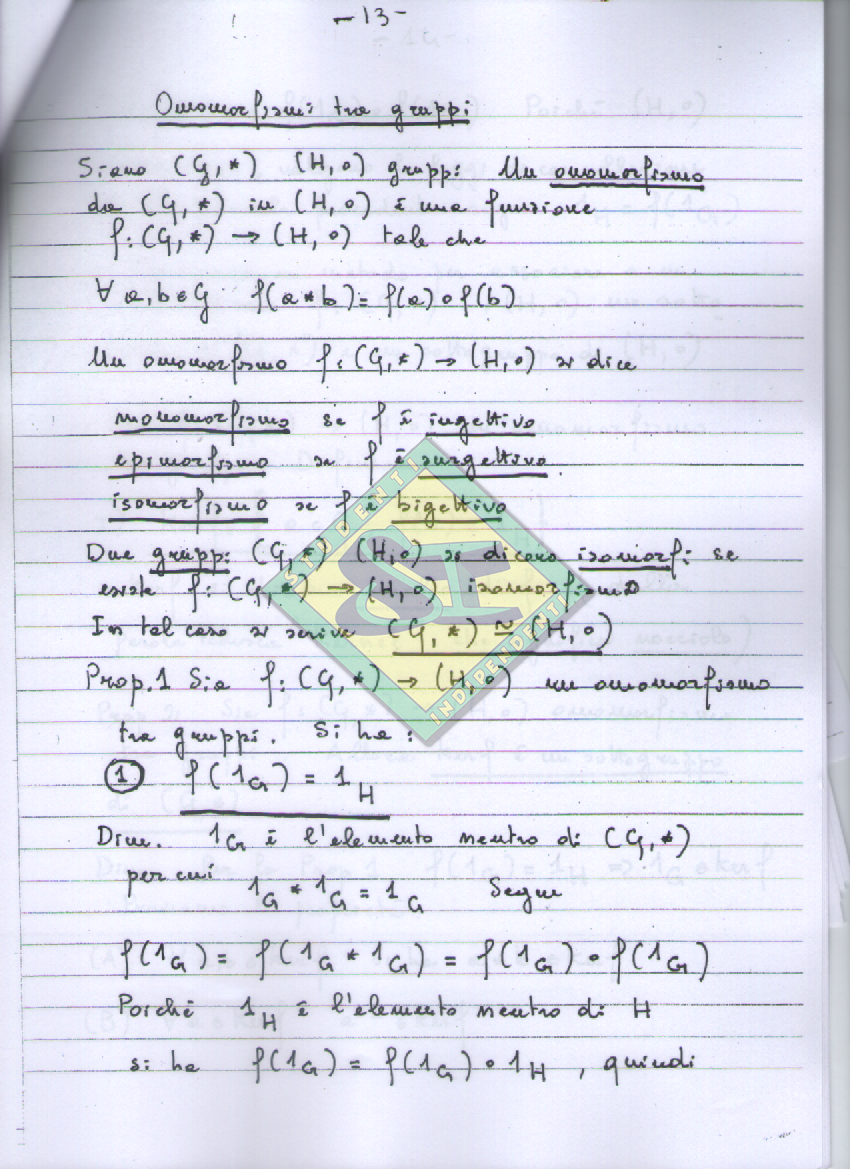 - 13 -
Omomorfismi tra gruppi
Siano (G, *) (H, ∘) gruppi Un omomorfismo
da (G, *) in (H, ∘) è una funzione
f: (G, *) → (H, ∘) tale che
∀ a, b ∈ G f(a * b) = f(a) ∘ f(b)
Un omomorfismo f: (G, *) → (H, ∘) si dice
monomorfismo se f è ingettivo
epimorfismo se f è surgettivo.
isomorfismo se f è bigettivo
Due gruppi (G, *) (H, ∘) si dicono isomorfi se
esiste f: (G, *) → (H, ∘) isomorfismo
In tal caso si scrive (G, *) ≃ (H, ∘)
STUDENTI
INDIPENDENTI
Prop. 1 Sia f: (G, *) → (H, ∘) un omomorfismo
tra gruppi. Si ha:
① f(1_G) = 1_H
Dim. 1_G è l'elemento neutro di (G, *)
per cui 1_G * 1_G = 1_G Segue
f(1_G) = f(1_G * 1_G) = f(1_G) ∘ f(1_G)
Poichè 1_H è l'elemento neutro di H
si ha f(1_G) = f(1_G) ∘ 1_H , quindi